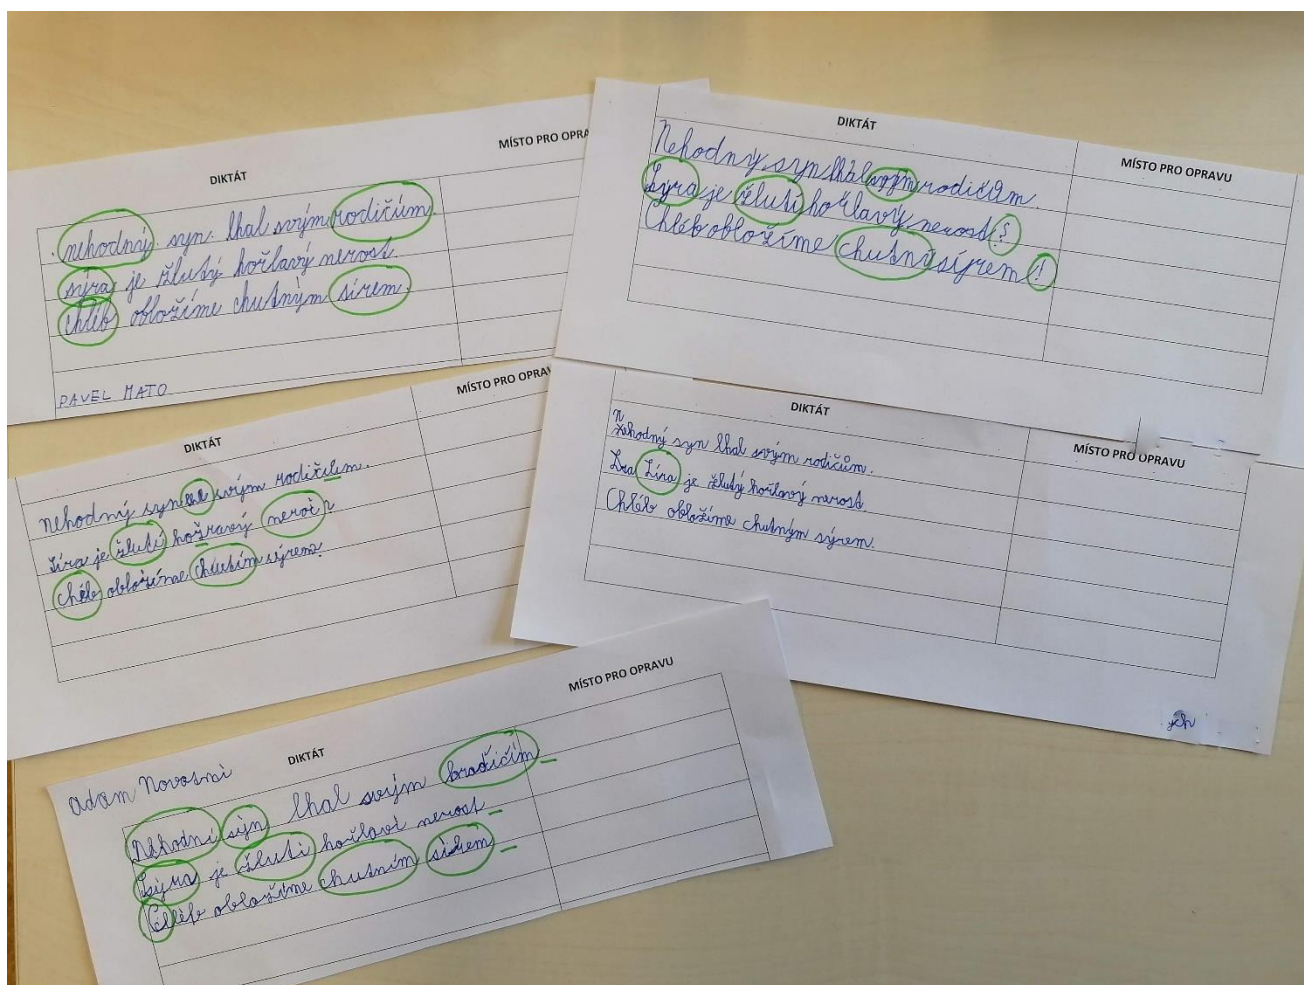 DIKTÁT
MÍSTO PRO OPRA
nehodný syn. lhal svým rodičům.
sýra je žlutý hořlavý nerost.
chléb obložíme chutným sírem.
PAVEL MATO
DIKTÁT
MÍSTO PRO OPRAVU
Nehodný syn lhal svým rodičům.
Sýra je žlutí hořlavý nerost?
Chléb obložíme chutný sýrem!
DIKTÁT
MÍSTO PRO OPRAV
nehodný syn svým
síra je žlutí hožravý
chéb obložíme sýrem.
DIKTÁT
MÍSTO PRO OPRAVU
N
ehodný syn lhal svým rodičům.
Síra je žlutý hořlavý nerost
Chléb obložíme chutným sýrem.
adam Novotni
DIKTÁT
MÍSTO PRO OPRAVU
lhal svým
Sýra je žluti hořlavi nerost
Chléb obložíme chutním